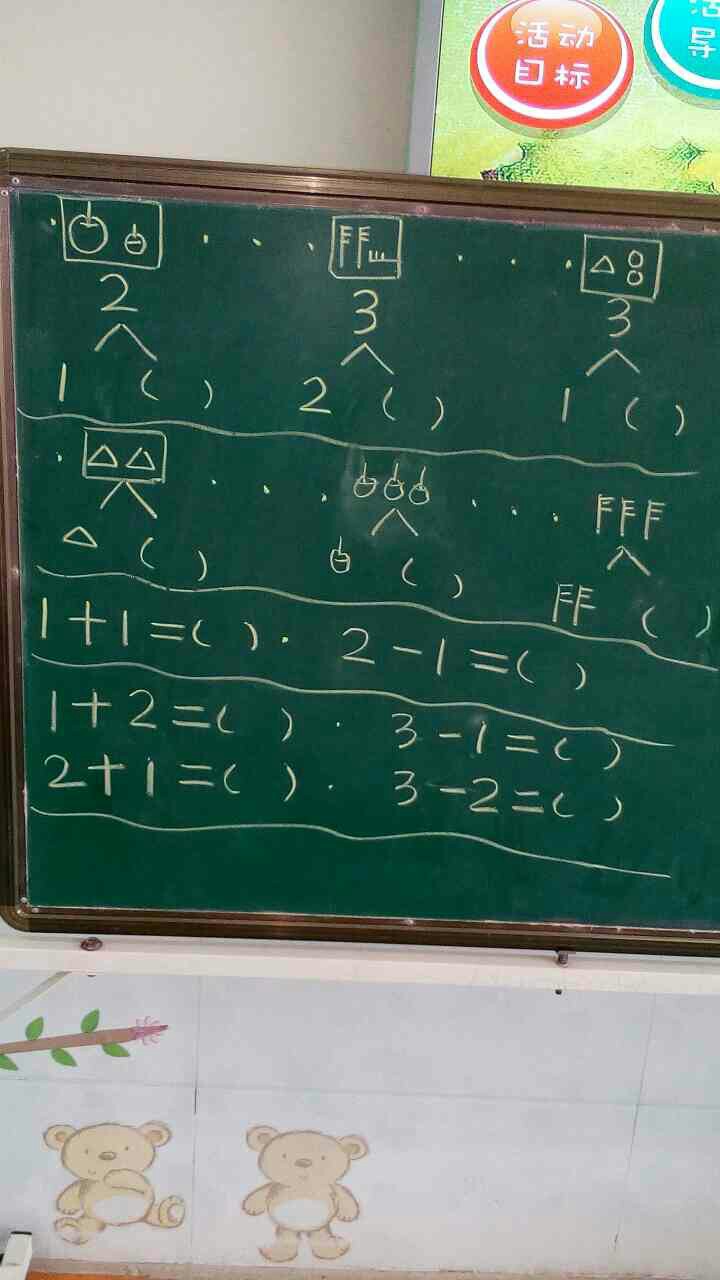 活动
目标
活
导
2 3 3
1 ( ) 2 ( ) 1 ( )
( ) ( ) ( )
1+1=( ) 2-1=( )
1+2=( ) 3-1=( )
2+1=( ) 3-2=( )